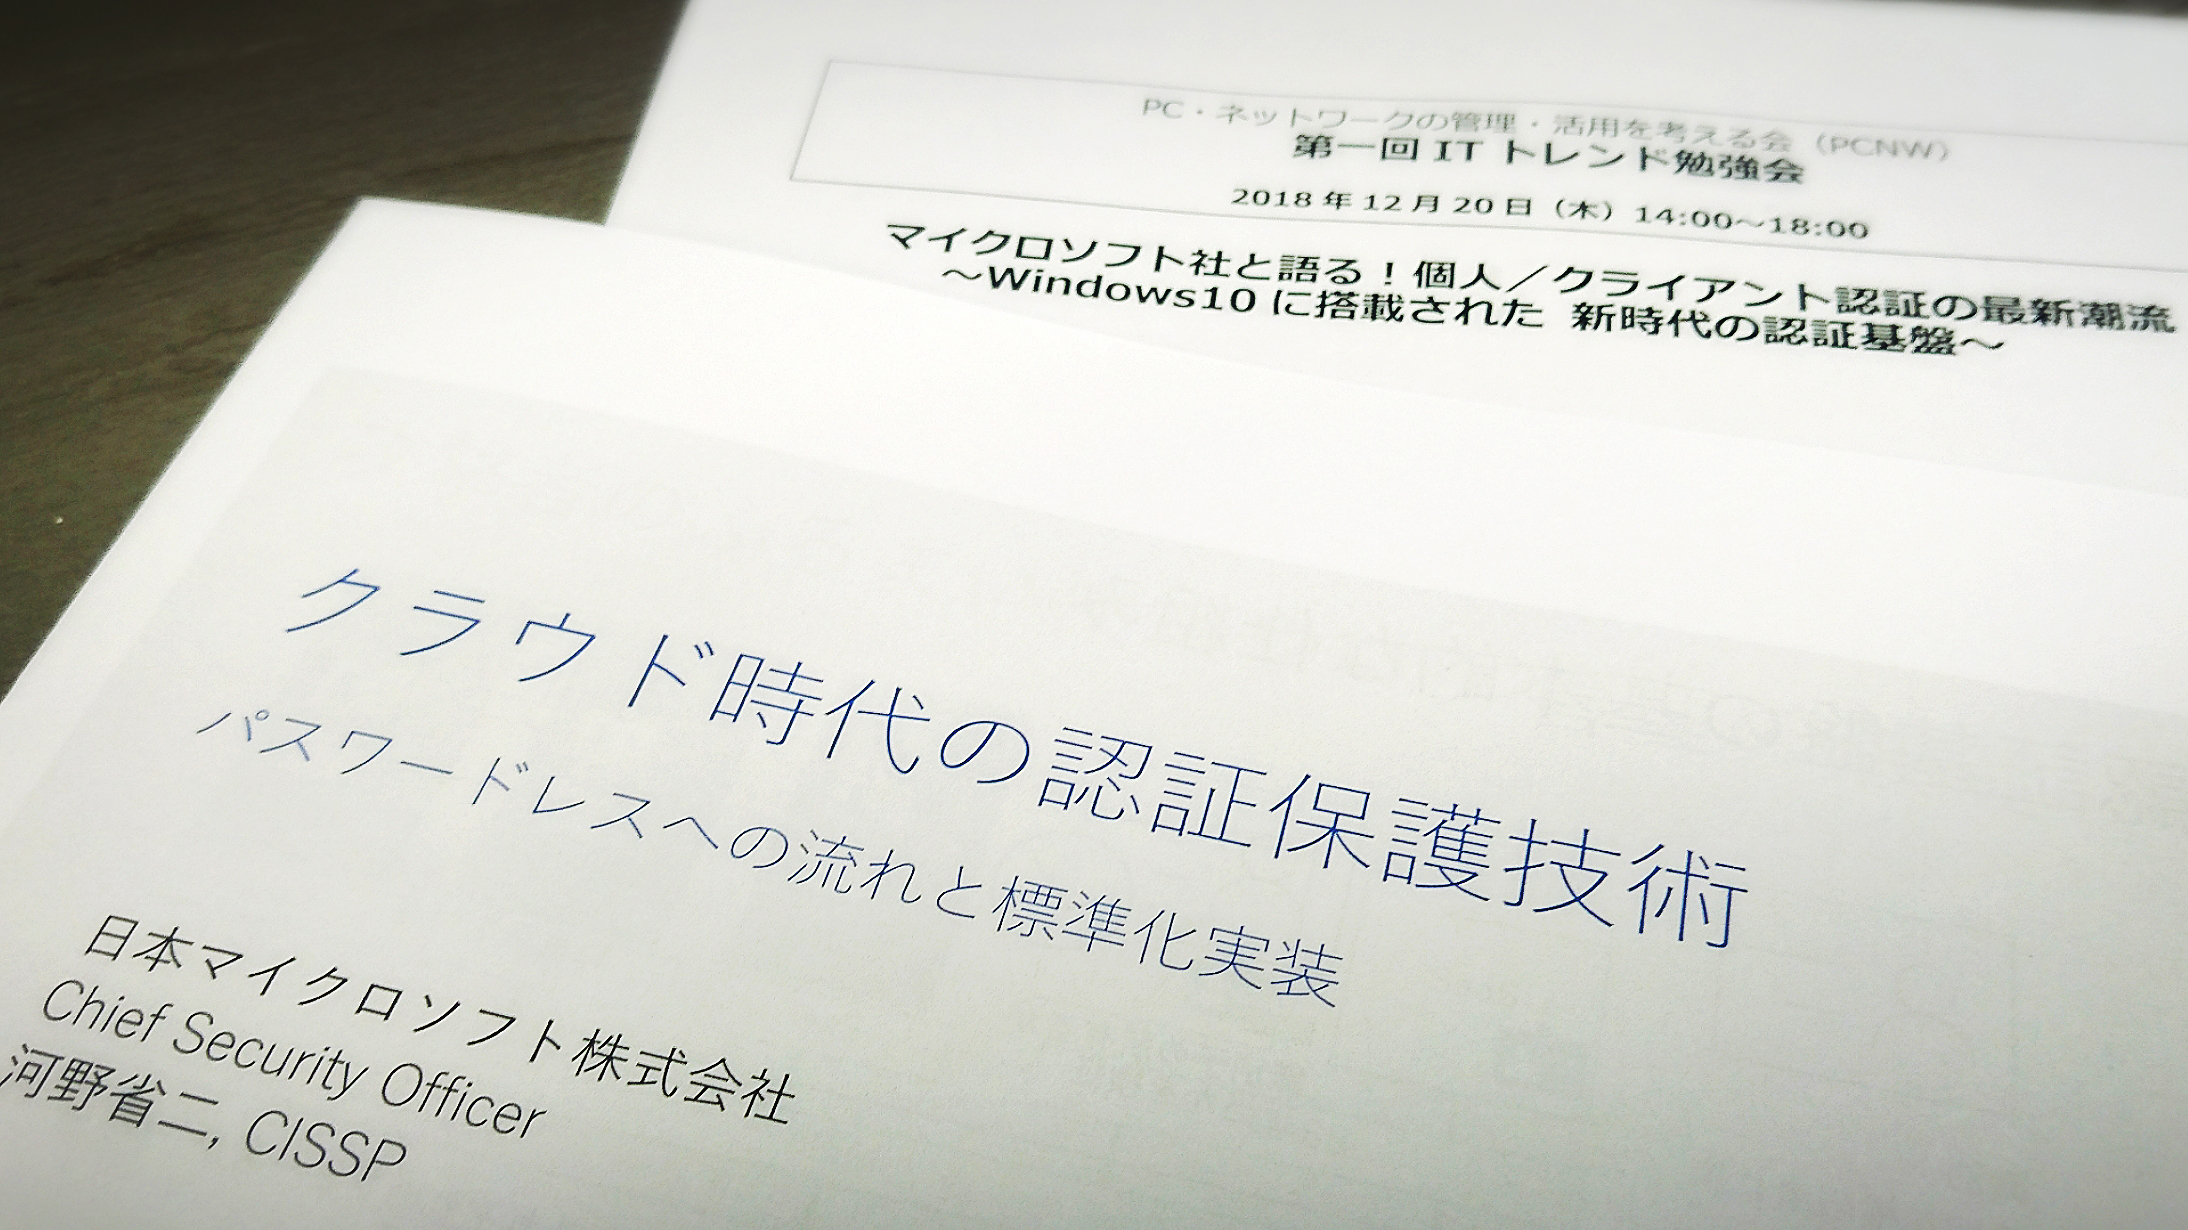 PC・ネットワークの管理・活用を考える会（PCNW）
第一回 IT トレンド勉強会
2018 年 12 月 20 日（木）14:00～18:00
マイクロソフト社と語る！個人／クライアント認証の最新潮流
～Windows10 に搭載された 新時代の認証基盤～
クラウド時代の認証保護技術
パスワードレスへの流れと標準化実装
日本マイクロソフト株式会社
Chief Security Officer
河野省二, CISSP